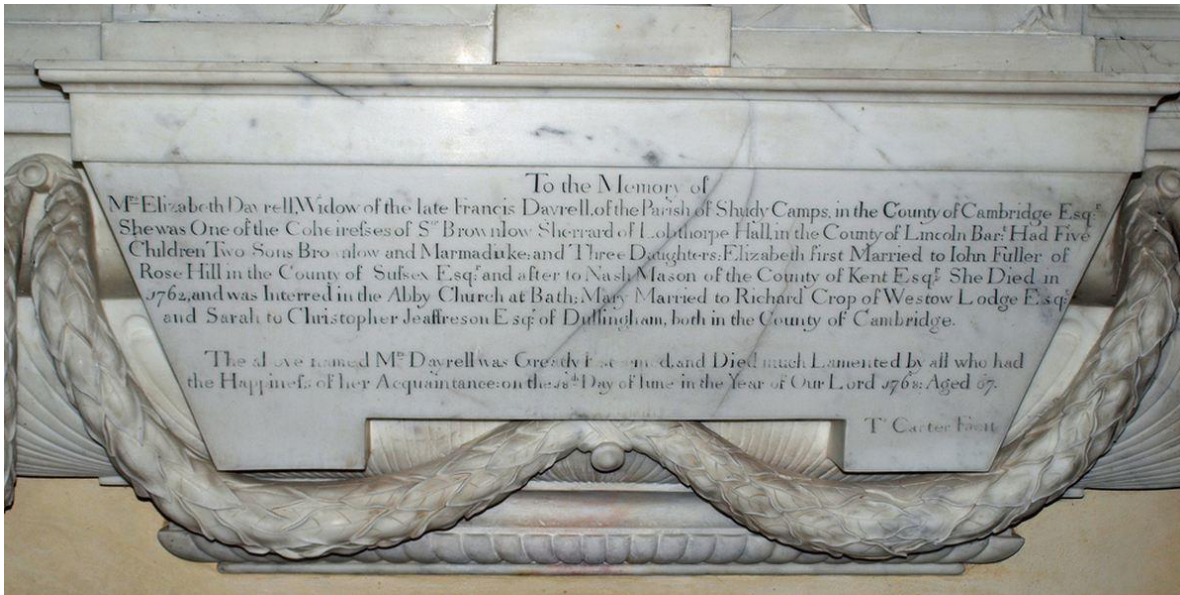 To the Memory of
Mrs. Elizabeth Dayrell, Widow of the late Francis Dayrell, of the Parish of Shudy Camps, in the County of Cambridge Esqr.
She was One of the Coheiresses of Sr. Brownlow Sherrard of Lobthorpe Hall, in the County of Lincoln Bart: Had Five
Children Two Sons Brownlow and Marmaduke: and Three Daughters: Elizabeth first Married to Iohn Fuller of
Rose Hill in the County of Sussex Esqr. and after to Nash Mason of the County of Kent Esqr. She Died in
1762, and was Interred in the Abby Church at Bath; Mary Married to Richard Crop of Westow Lodge Esqr:
and Sarah to Christopher Jeaffreson Esqr. of Dullingham, both in the County of Cambridge.
The above named Mrs. Dayrell was Greatly Esteemed, and Died much Lamented by all who had
the Happiness of her Acquaintance: on the 18th. Day of Iune in the Year of Our Lord 1768: Aged 67.
Ts. Carter Fecit